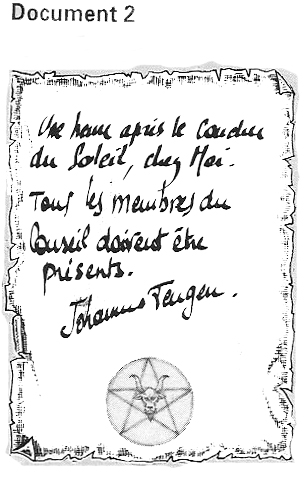 Document 2
Une heure après le coucher
du Soleil, chez Moi.
Tous les membres du
Conseil doivent être
présents.
Johannes Tengen.